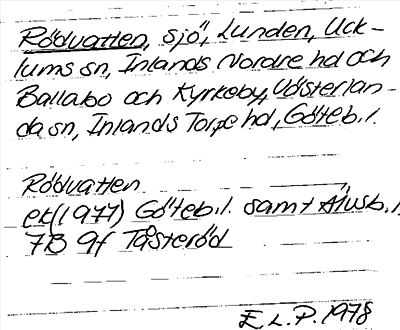 Rödvatten, sjö, Lunden, Uck-
lums sn, Inlands Nordre hd och
Ballabo och Kyrkeby, Västerlan-
da sn, Inlands Torpe hd, Göteb. l.
Rödvatten
ek (1977) Göteb. l. samt Älvsb. l.
7B 9f Tåsteröd
E L. P. 1978